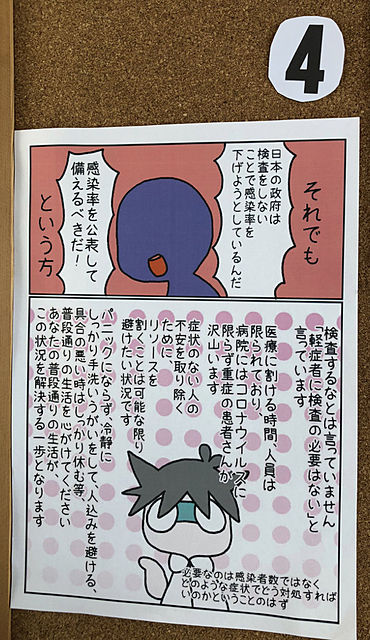 4
それでも
日本の政府は
検査をしない
ことで感染率を
下げようとしているんだ
感染率を公表して
備えるべきだ!
という方
検査するなとは言っていません
「軽症者に検査の必要はない」と
言っています
医療に割ける時間、人員は
限られており、
病院にはコロナウイルスに
限らず重症の患者さんが
沢山います
症状のない人の
不安を取り除く
ために
リソースを
割くことは可能な限り
避けたい状況です
パニックにならず、冷静に
しっかり手洗いうがいをして、人込みを避ける、
具合の悪い時はしっかり休む等、
普段通りの生活を心がけてください
あなたの普段通りの生活が、
この状況を解決する一歩となります
必要なのは感染者数ではなく
どのような症状でどう対処すれば
いのかということのはず